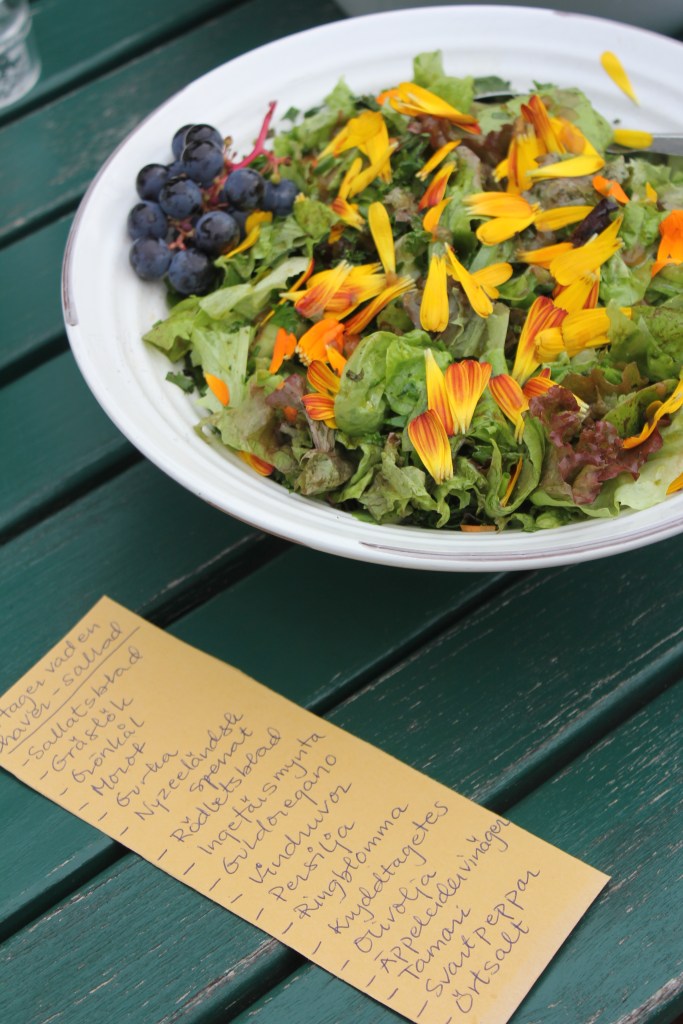 tager vad en
haver-sallad
- Sallatsblad
- Gräslök
- Grönkål
- Morot
- Gurka
- Nyzeeländsk
spenat
- Rödbetsblad
- Ingefärsmynta
- Guldoregano
- Vindruvor
- Persilja
- Ringblomma
- Kryddtagetes
- Olivolja
- Äppelcidervinäger
- Tamari
- Svartpeppar
- Örtsalt